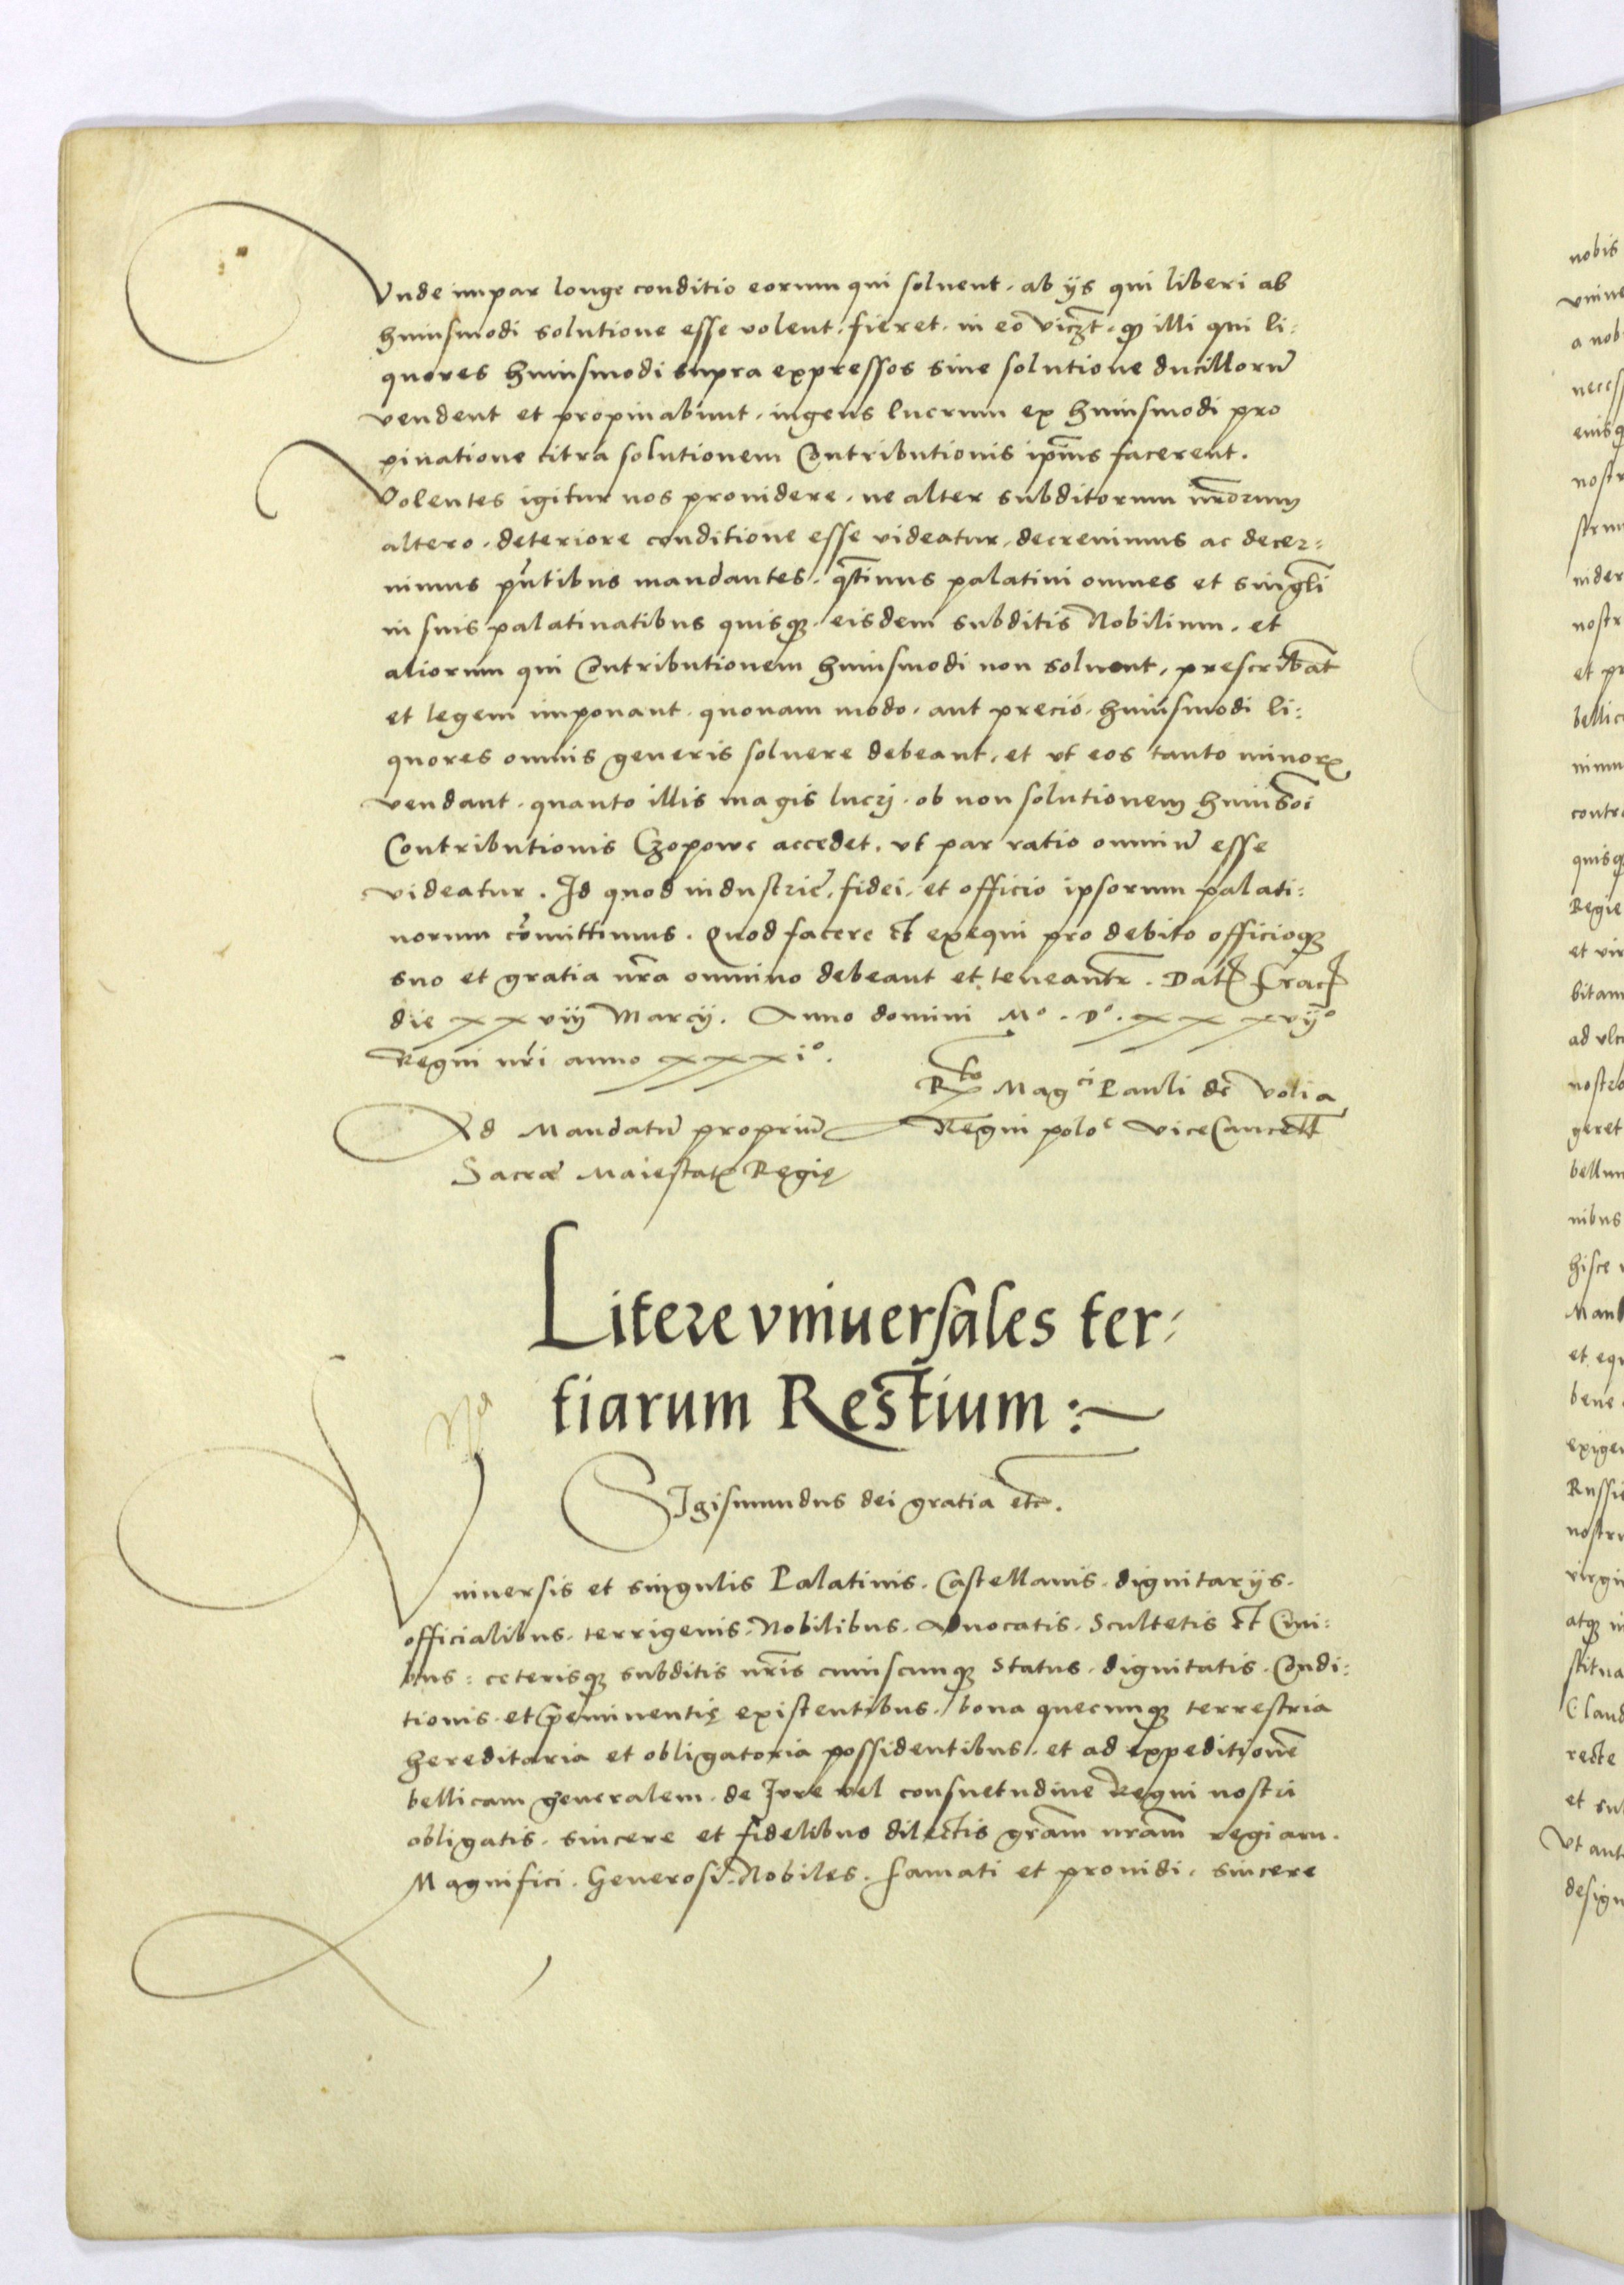 Vnde impar longe conditio eorum qui soluent, ab ijs qui liberi ab
huiusmodi solutione esse volent, fieret, in eo vicz̃t, qꝫ illi qui li:
quores huiusmodi supra expressos sine solutione ducillorũ
vendent et propinabunt, ingens lucrum ex huiusmodi pro
pinatione citra solutionem Contributionis ip̃ius facerent.
Volentes igitur nos prouidere, ne alter subditorum nr̃orum
altero, deteriore conditione esse videatur, decreuimus ac decer:
nimus pñtibus mandantes, q̃tinus palatini omnes et singl̃i
in suis palatinatibus quisqꝫ, eisdem subditis Nobilium, et
aliorum qui Contributionem huiusmodi non soluent, prescribãt
et legem imponant, quonam modo, aut precio, huiusmodi li:
quores omnis generis soluere debeant, et vt eos tanto minorꝭ
vendant, quanto illis magis lucrj, ob non solutionem huiusm̃oi
Contributionis Czopowe accedet, vt par ratio omniũ esse
videatur. Id quod industrie, fidei, et officio ipsorum palati:
norum cõmittimus. Quod facere et exequi pro debito officioqꝫ
suo et gratia nr̃a omnino debeant et teneantr̃. Datꝭ Cracꝭ
die xxviij Marcij. Anno domini Mº. Dº. xxxvijº
Regni nr̃i anno xxxiº.
Rᵗᵒ Magᶜⁱ Pauli de Volia
Ad Mandatũ propriũ Regni poloᵉ ViceCancell̃
Sacræ Maiestatꝭ Regię
Litere vniuersales ter:
tiarum Restium :~
SIgismundus dei gratia etc.
Vniuersis et singulis Palatinis, Castellanis, dignitarijs,
officialibus, terrigenis, Nobilibus, Aduocatis, Scultetis et Ciui:
bus: ceterisqꝫ subditis nr̃is cuiuscunqꝫ status, dignitatis, Condi:
tionis, et p̃eminentię existentibus, bona quecunqꝫ terrestria
hereditaria et obligatoria possidentibus, et ad expeditionẽ
bellicam generalem, de Iure vel consuetudine Regni nostri
obligatis, sincere et fidelibus dilectis grãm nr̃am regiam.
Magnifici. Generosi. Nobiles. famati et prouidi, sincere